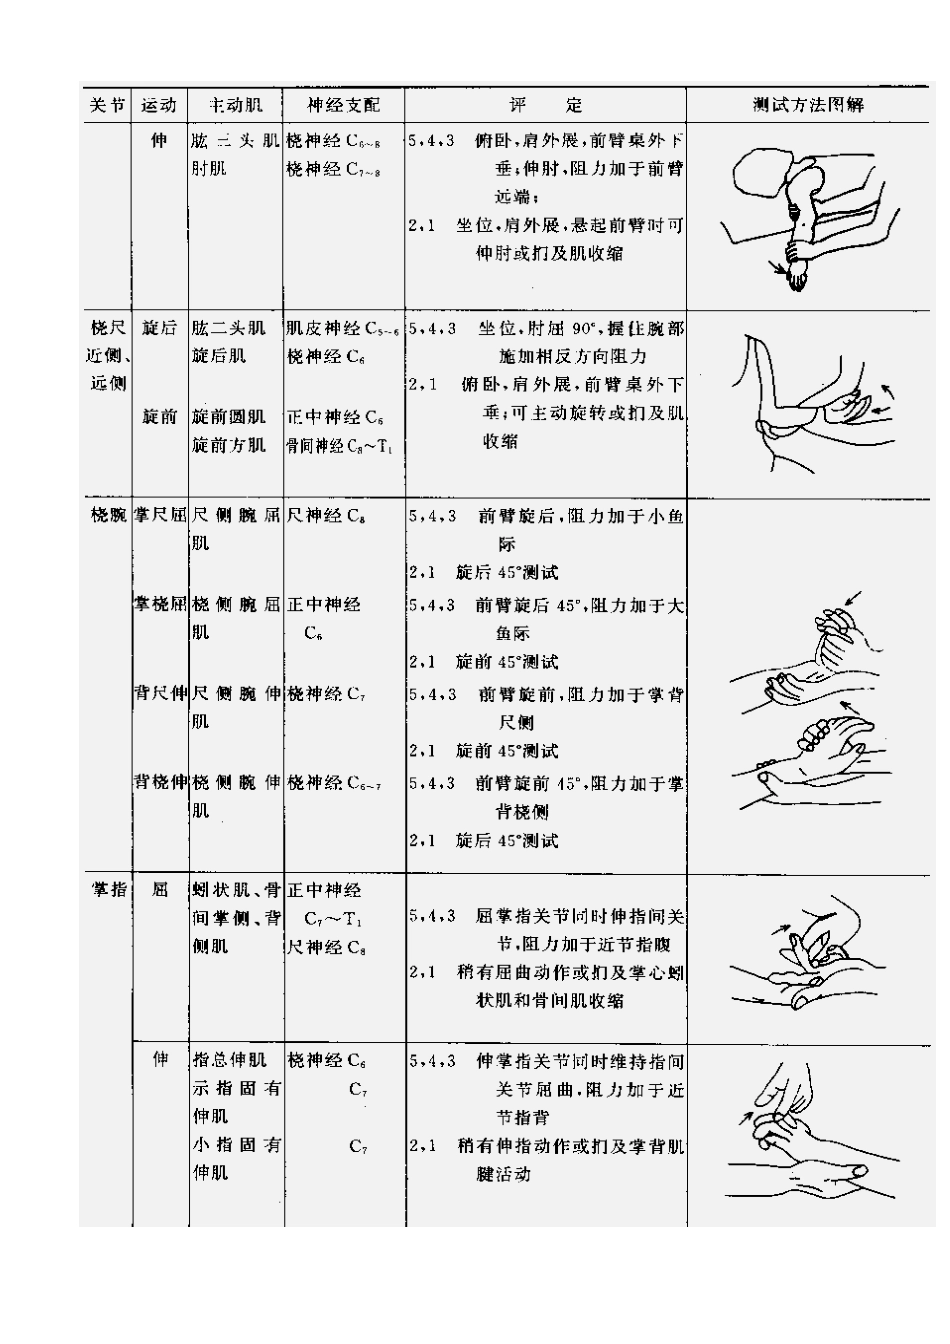 关节 运动 主动肌 神经支配 评 定 测试方法图解
伸 肱三头肌 桡神经 C₆~₈ 5,4,3 俯卧,肩外展,前臂桌外下
肘肌 桡神经 C₇~₈ 垂;伸肘,阻力加于前臂
远端;
2,1 坐位,肩外展,悬起前臂时可
伸肘或扪及肌收缩
桡尺 旋后 肱二头肌 肌皮神经 C₅~₆ 5,4,3 坐位,肘屈 90°,握住腕部
近侧、 旋后肌 桡神经 C₆ 施加相反方向阻力
远侧 2,1 俯卧,肩外展,前臂桌外下
旋前 旋前圆肌 正中神经 C₆ 垂;可主动旋转或扪及肌
旋前方肌 骨间神经 C₈~T₁ 收缩
桡腕 掌尺屈 尺侧腕屈 尺神经 C₈ 5,4,3 前臂旋后,阻力加于小鱼
肌 际
2,1 旋后 45°测试
掌桡屈 桡侧腕屈 正中神经 5,4,3 前臂旋后 45°,阻力加于大
肌 C₆ 鱼际
2,1 旋前 45°测试
背尺伸 尺侧腕伸 桡神经 C₇ 5,4,3 前臂旋前,阻力加于掌背
肌 尺侧
2,1 旋前 45°测试
背桡伸 桡侧腕伸 桡神经 C₆~₇ 5,4,3 前臂旋前 45°,阻力加于掌
肌 背桡侧
2,1 旋后 45°测试
掌指 屈 蚓状肌、骨 正中神经
间掌侧、背 C₇~T₁ 5,4,3 屈掌指关节同时伸指间关
侧肌 尺神经 C₈ 节,阻力加于近节指腹
2,1 稍有屈曲动作或扪及掌心蚓
状肌和骨间肌收缩
伸 指总伸肌 桡神经 C₆ 5,4,3 伸掌指关节同时维持指间
示指固有 C₇ 关节屈曲,阻力加于近
伸肌 节指背
小指固有 C₇ 2,1 稍有伸指动作或扪及掌背肌
伸肌 腱活动